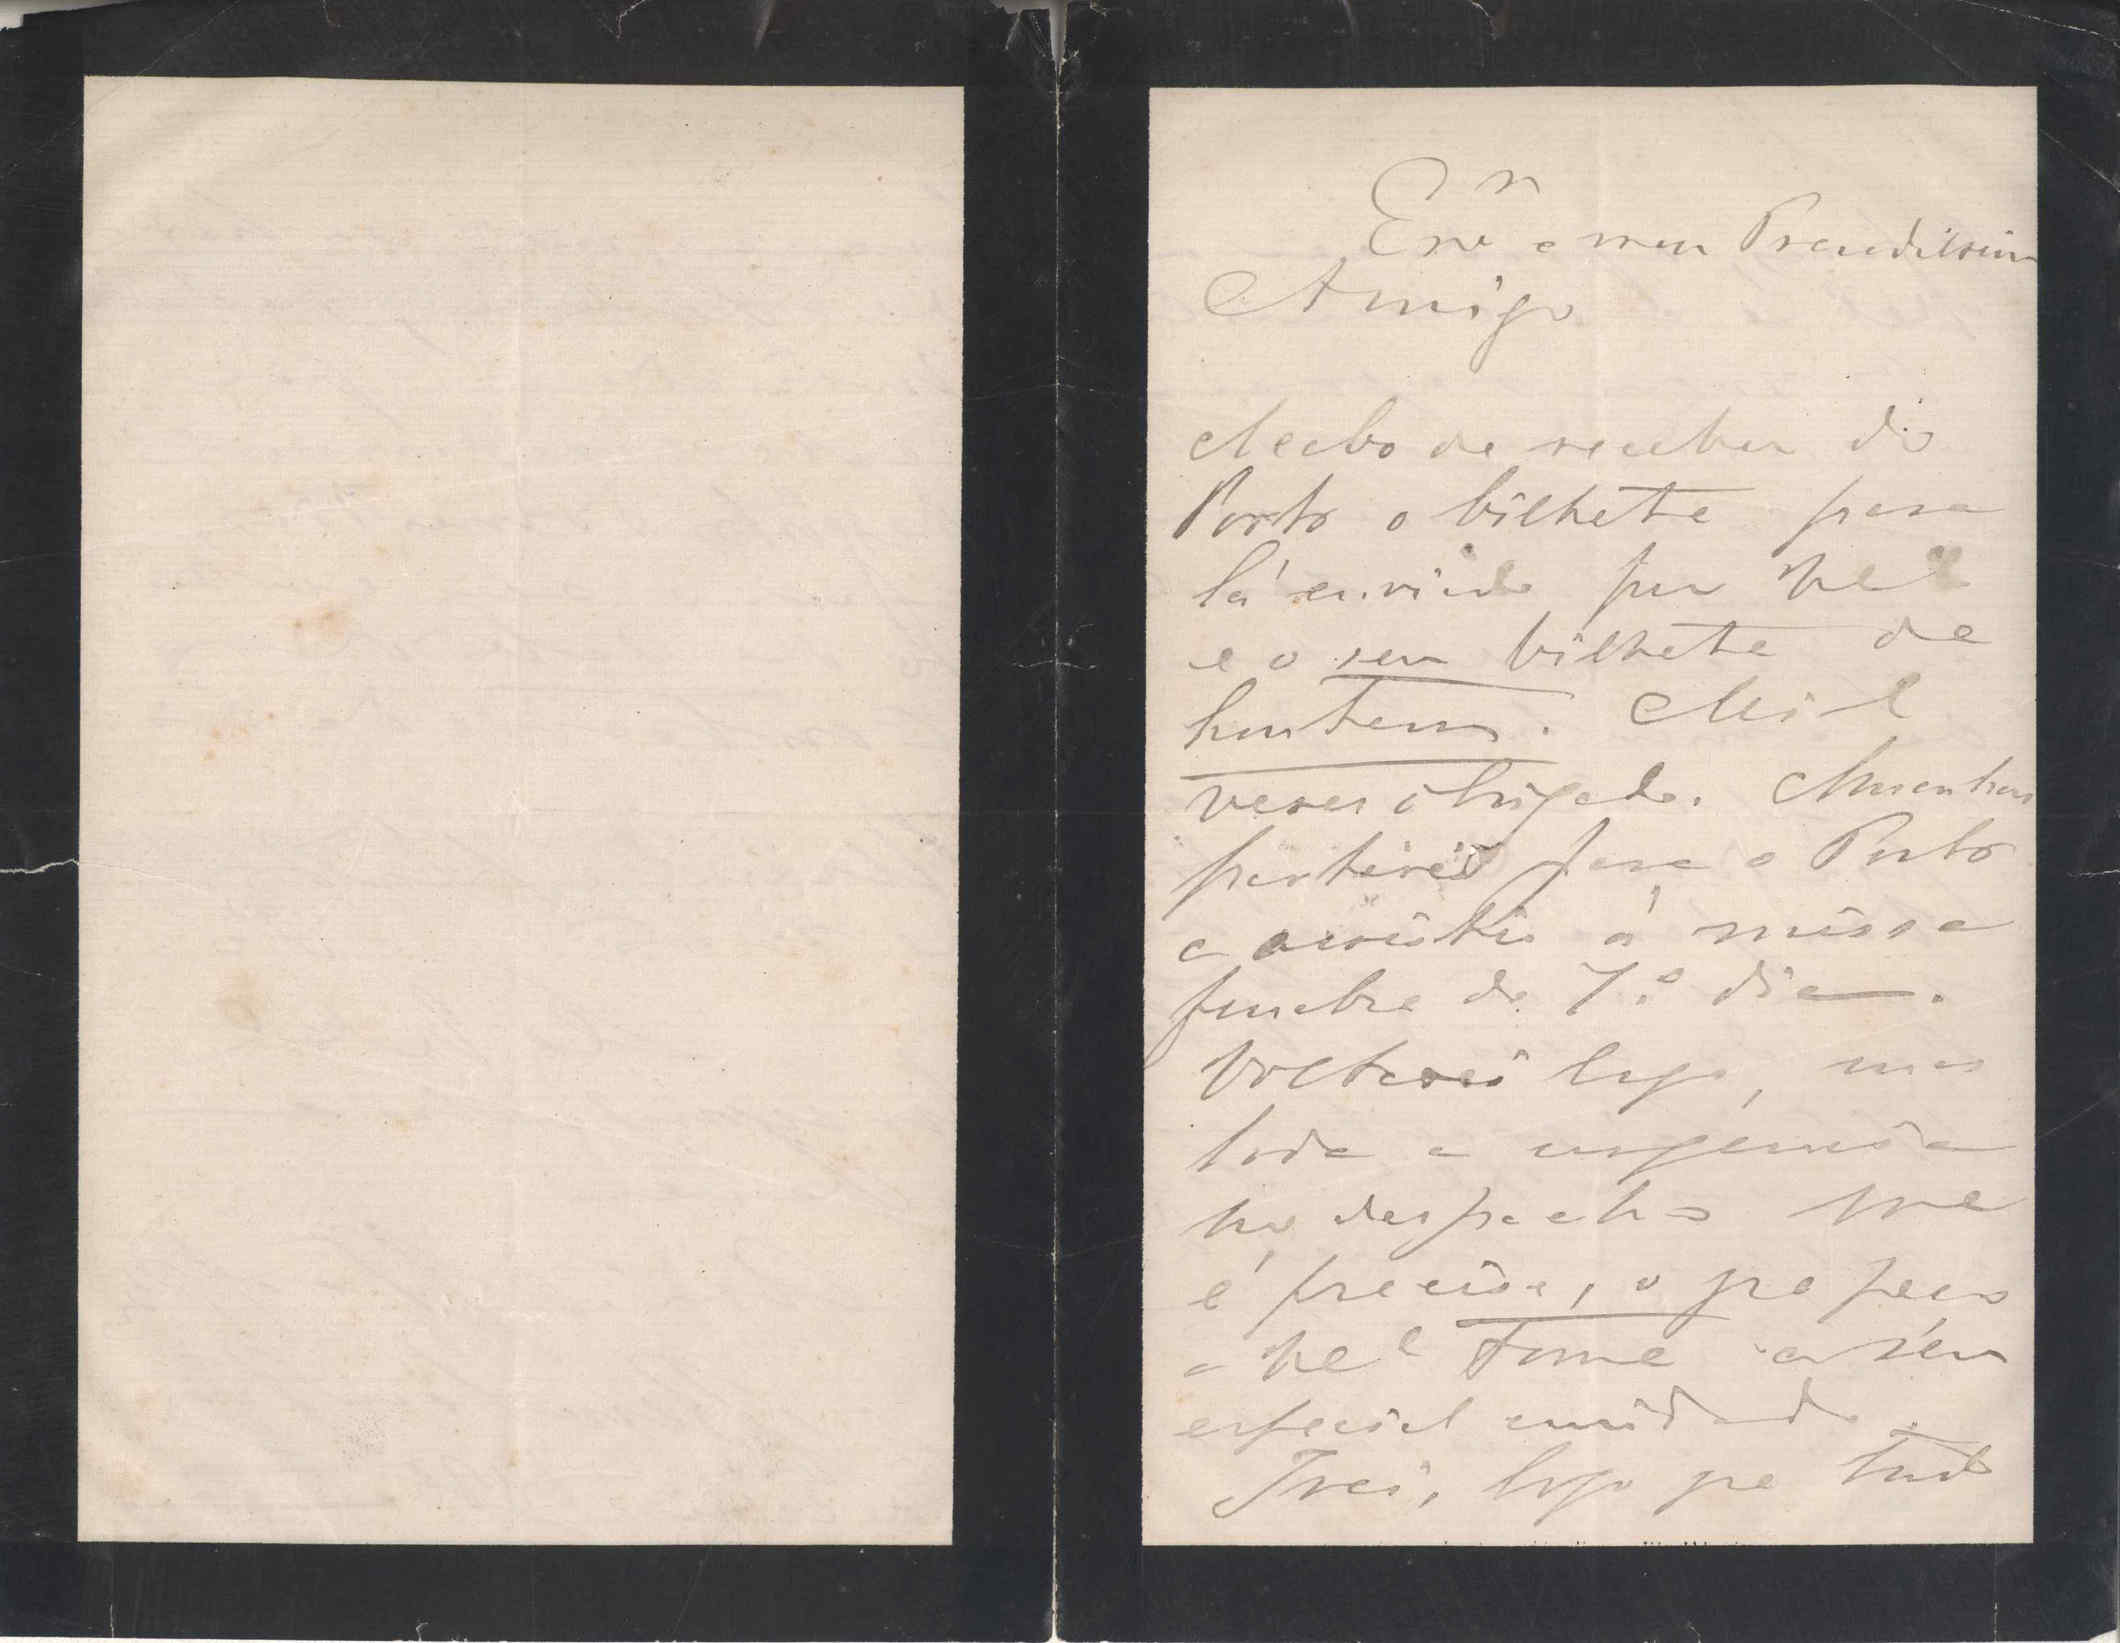 Exmo e meu Prendissimo
Amigo
Acabo de receber do
Porto o bilhete para
lá enviado por V.
e o seu bilhete de
hontem. Mil
vezes obrigado. Amanhan
partirei para o Porto
a assistir á missa
funebre do 7.º dia.
Voltarei logo, mas
toda a urgencia
no despacho que
é precisa, o que peço
a tome a seu
especial cuidado.
Irei, logo que tudo